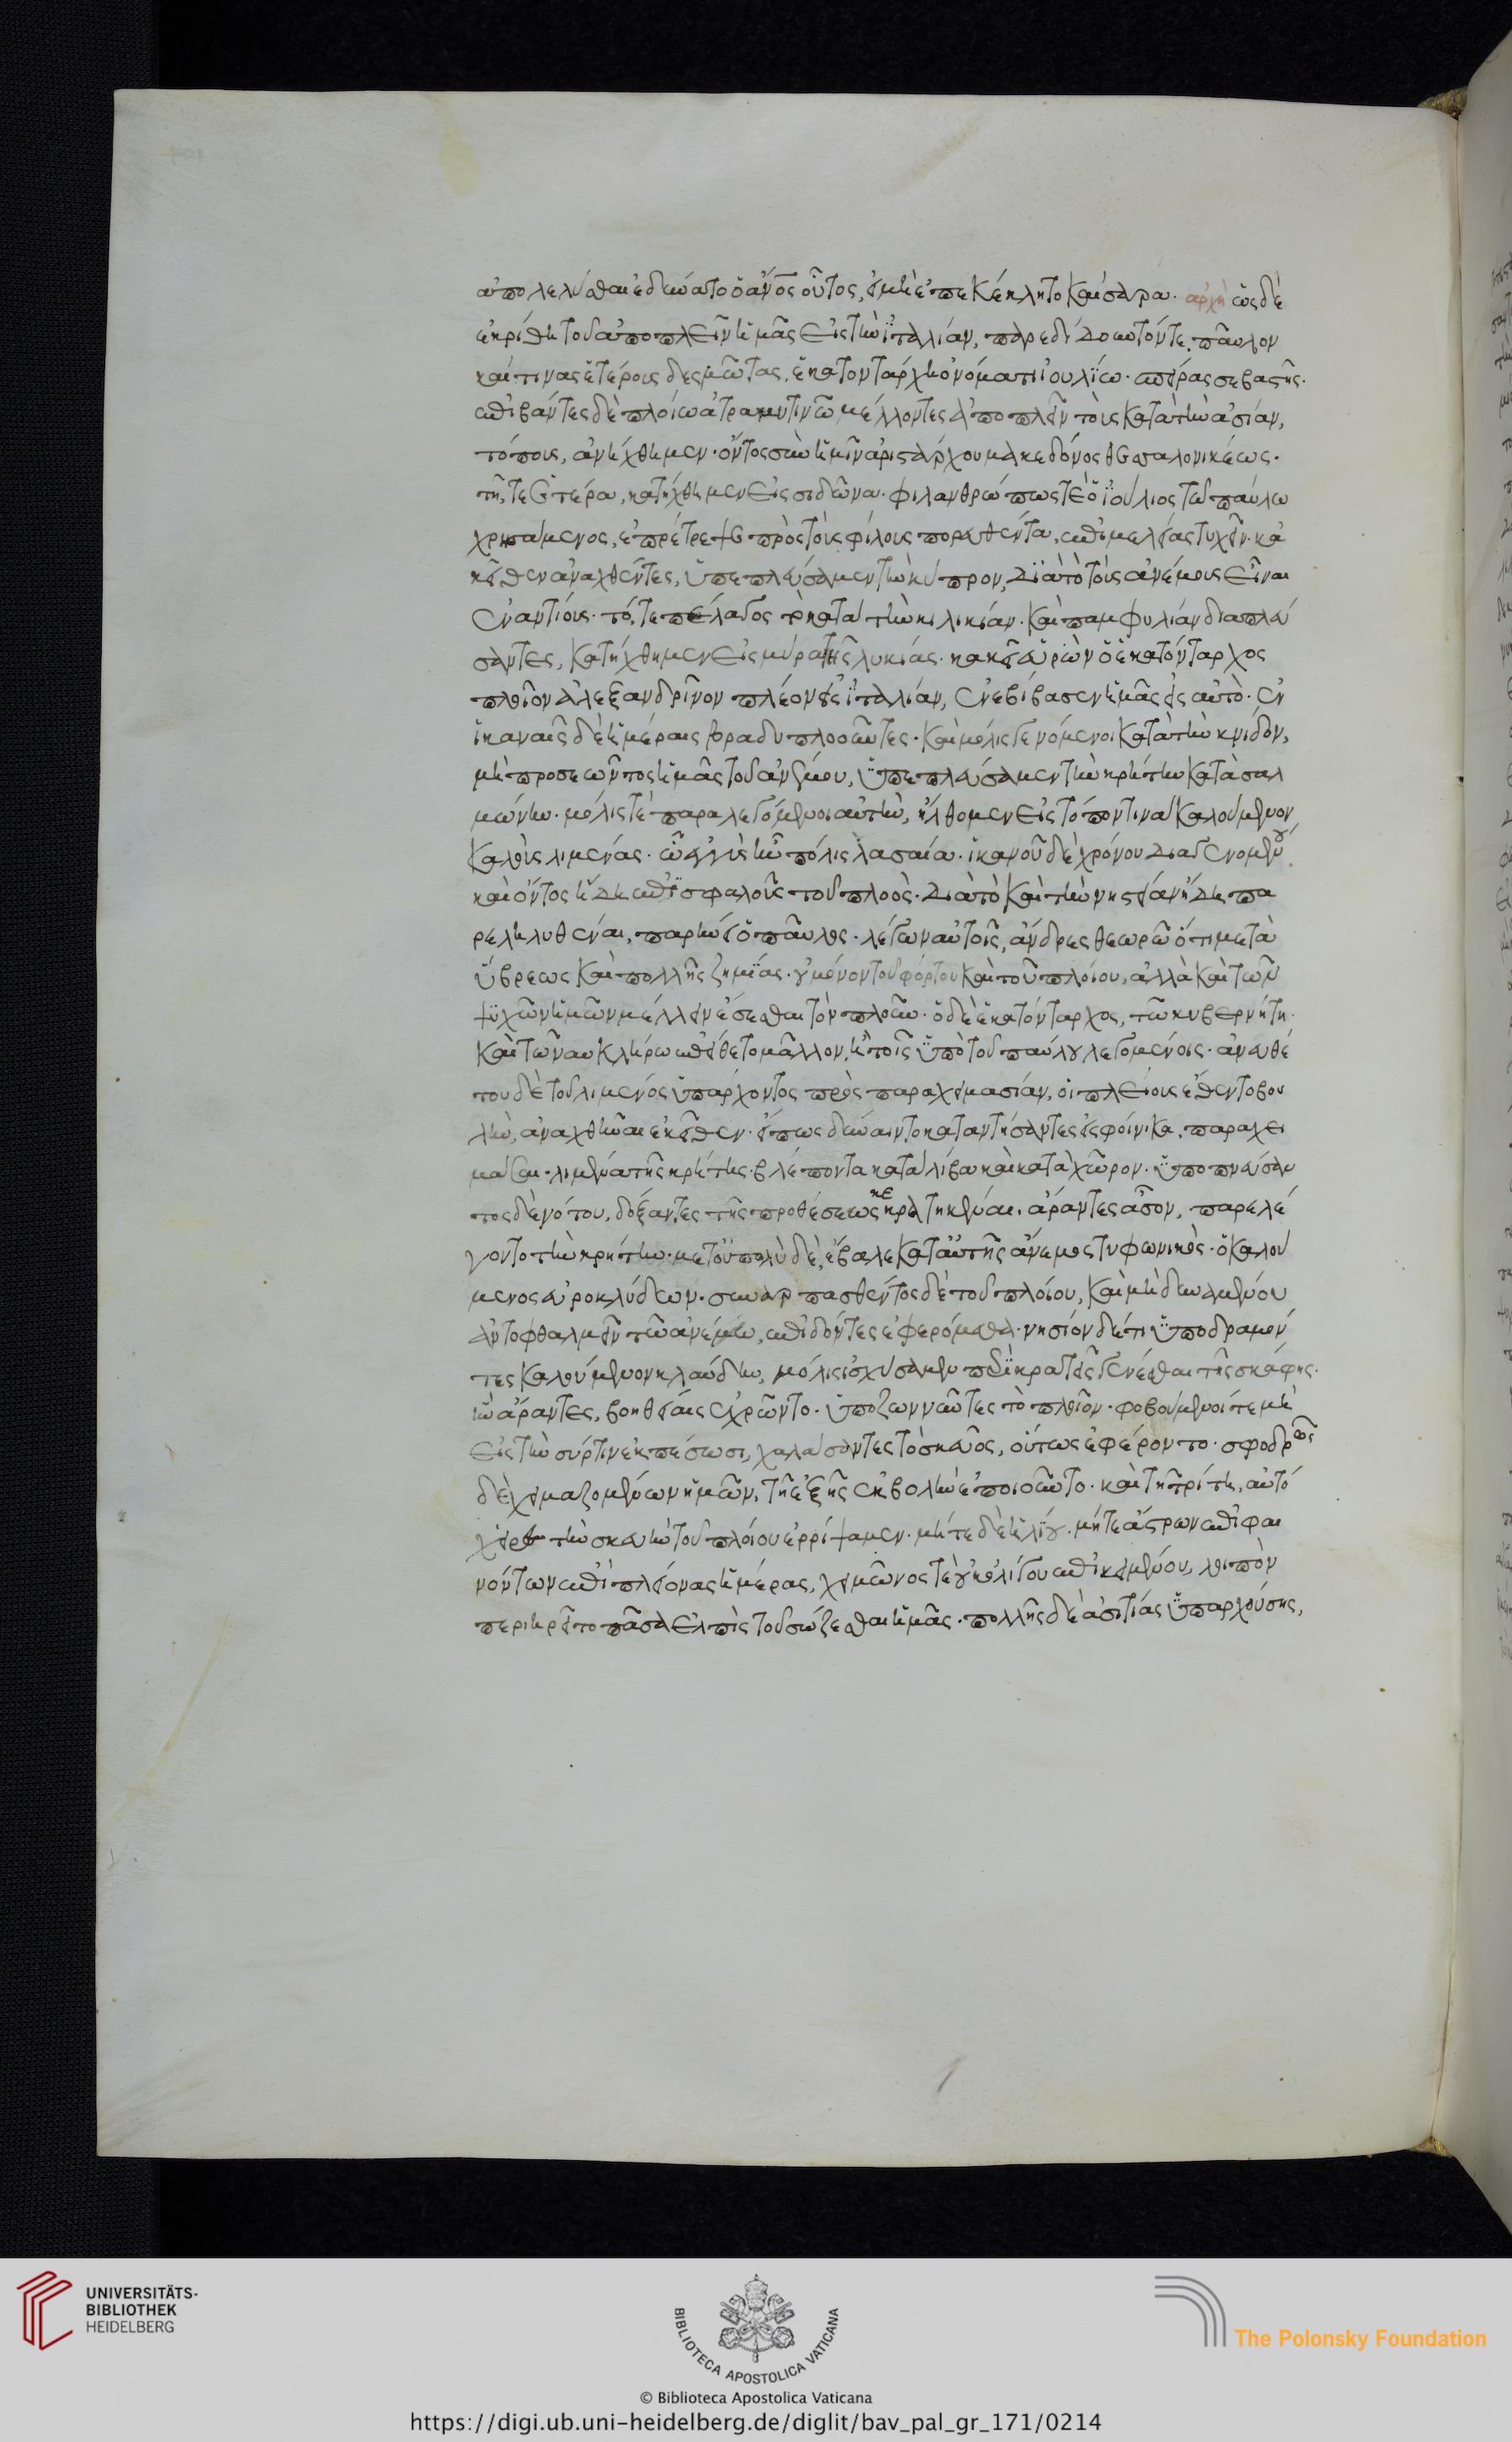 ἀπολελύσθαι ἐδύνατο ὁ ἄνος οὗτος, εἰ μὴ ἐπεκέκλητο καίσαρα. ἀρχὴ ὡς δὲ
ἐκρίθη τοῦ ἀποπλεῖν ἡμᾶς εἰς τὴν ἰταλίαν, παρεδίδουν τόν τε παῦλον
καί τινας ἑτέρους δεσμώτας, ἑκατοντάρχη ὀνόματι ἰουλίω. σπείρας σεβαστῆς.
ἐπιβάντες δὲ πλοίω ἀτραμυτινῶ μέλλοντες ἀποπλεῖν τοὺς κατὰ τὴν ἀσίαν,
τόπους, ἀνήχθημεν. ὄντος σὺν ἡμῖν ἀριστάρχου μακεδόνος θεσσαλονικέως.
τῆ, τε ἑτέρα, κατήχθημεν εἰς σιδῶνα. φιλανθρώπως τὲ ὁ ἰούλιος τῶ παύλω
χρησάμενος, ἐπρέτρεψε πρὸς τοὺς φίλους πορευθέντα, ἐπιμελείας τυχεῖν. κα
κεῖθεν ἀναχθέντες, ὑπεπλεύσαμεν τὴν κύπρον, διὰ τὸ τοὺς ἀνέμους εἶναι
ἐναντίους. τό, τε πέλαγος τὸ κατὰ τὴν κιλικίαν. καὶ παμφυλίαν διαπλεύ
σαντες, κατήχθημεν εἰς μύρα τῆς λυκίας. κακεῖ εὑρὼν ὁ ἑκατόνταρχος
πλοῖον ἀλεξανδρῖνον πλέον εἰς ἰταλίαν, ἐνεβίβασεν ἡμᾶς εἰς αὐτό. ἐν
ἱκαναῖς δὲ ἡμέραις βραδυπλοοῦντες. καὶ μόλις γενόμενοι κατὰ τὴν κνίδον,
μὴ προσεῶντος ἡμᾶς τοῦ ἀνέμου, ὑπεπλεύσαμεν τὴν κρήτην κατὰ σαλ
μώνην. μόλις τὲ παραλεγόμενοι αὐτὴν, ἤλθομεν εἰς τόπον τινα καλούμενον
καλοὺς λιμενας. ὧ ἐγγὺς ἦν πόλις λασαία. ἱκανοῦ δὲ χρόνου διαγενομένου
καὶ ὄντος ἤδη ἐπισφαλοῦς τοῦ πλοὸς. διὰ τὸ καὶ τὴν νηστείαν ἤδη πα
ρεληλυθέναι, παρήνει ὁ παῦλος. λέγων αὐτοῖς, ἄνδρες θεωρῶ ὅτι μετὰ
ὕβρεως καὶ πολλῆς ζημίας. οὐ μόνον τοῦ φόρτου καὶ τοῦ πλοίου, ἀλλὰ καὶ τῶν
ψυχῶν ἡμῶν μέλλειν ἔσεσθαι τὸν πλοῦν. ὁ δὲ ἑκατόνταρχος, τῶ κυβερνήτη.
καὶ τῶ ναυκλήρω ἐπείθετο μᾶλλον, ἢ τοῖς ὑπὸ τοῦ παύλου λεγομένοις. ἀνευθέ
του δὲ τοῦ λιμενός ὑπάρχοντος πρὸς παραχειμασίαν, οἱ πλείους ἔθεντο βου
λὴν, ἀναχθῆναι ἐκεῖθεν. εἴπως δύναιντο καταντήσαντες εἰς φοίνικα, παραχει
μάσαι. λιμένα τῆς κρήτης. βλέποντα κατὰ λίβα καὶ κατὰ χῶρον. ὑποπνεύσαν
τος δὲ νότου, δόξαντες τῆς προθέσεως κεκρατηκέναι. ἄραντες ἆσον, παρελέ
γοντο τὴν κρήτην. μετ' οὐ πολὺ δὲ, ἔβαλε κατ' αὐτῆς ἄνεμος τυφωνικὸς. ὁ καλού
μενος εὐροκλύδων. συναρπασθέντος δὲ τοῦ πλοίου, καὶ μὴ δυναμένου
ἀντοφθαλμεῖν τῶ ἀνέμω, ἐπιδόντες ἐφερόμεθα. νησίον δέ τι ὑποδραμόν
τες καλούμενον κλαύδην, μόλις ἰσχύσαμεν περικρατεῖς γενέσθαι τῆς σκάφης.
ἣν ἄραντες, βοηθείαις ἐχρῶντο. ὑποζωννῦντες τὸ πλοῖον. φοβούμενοί τε μὴ
εἰς τὴν σύρτιν ἐκπέσωσι, χαλάσαντες τὸ σκεῦος, οὕτως ἐφέροντο. σφοδρῶς
δὲ χειμαζομένων ἡμῶν, τῆ ἑξῆς ἐκβολὴν ἐποιοῦντο. καὶ τῆ τρίτη, αὐτό
χειρες τὴν σκευὴν τοῦ πλοίου ἐρρίψαμεν. μήτε δὲ ἡλίου. μήτε ἄστρων ἐπιφαι
νόντων ἐπὶ πλείονας ἡμέρας, χειμῶνος τὲ οὐκ ὀλίγου ἐπικειμένου, λοιπὸν
περιηρεῖτο πᾶσα ἐλπὶς τοῦ σώζεσθαι ἡμᾶς. πολλῆς δὲ ἀσιτίας ὑπαρχούσης,
UNIVERSITÄTS-
BIBLIOTHEK
HEIDELBERG
BIBLIOTECA APOSTOLICA VATICANA
The Polonsky Foundation
© Biblioteca Apostolica Vaticana
https://digi.ub.uni-heidelberg.de/diglit/bav_pal_gr_171/0214